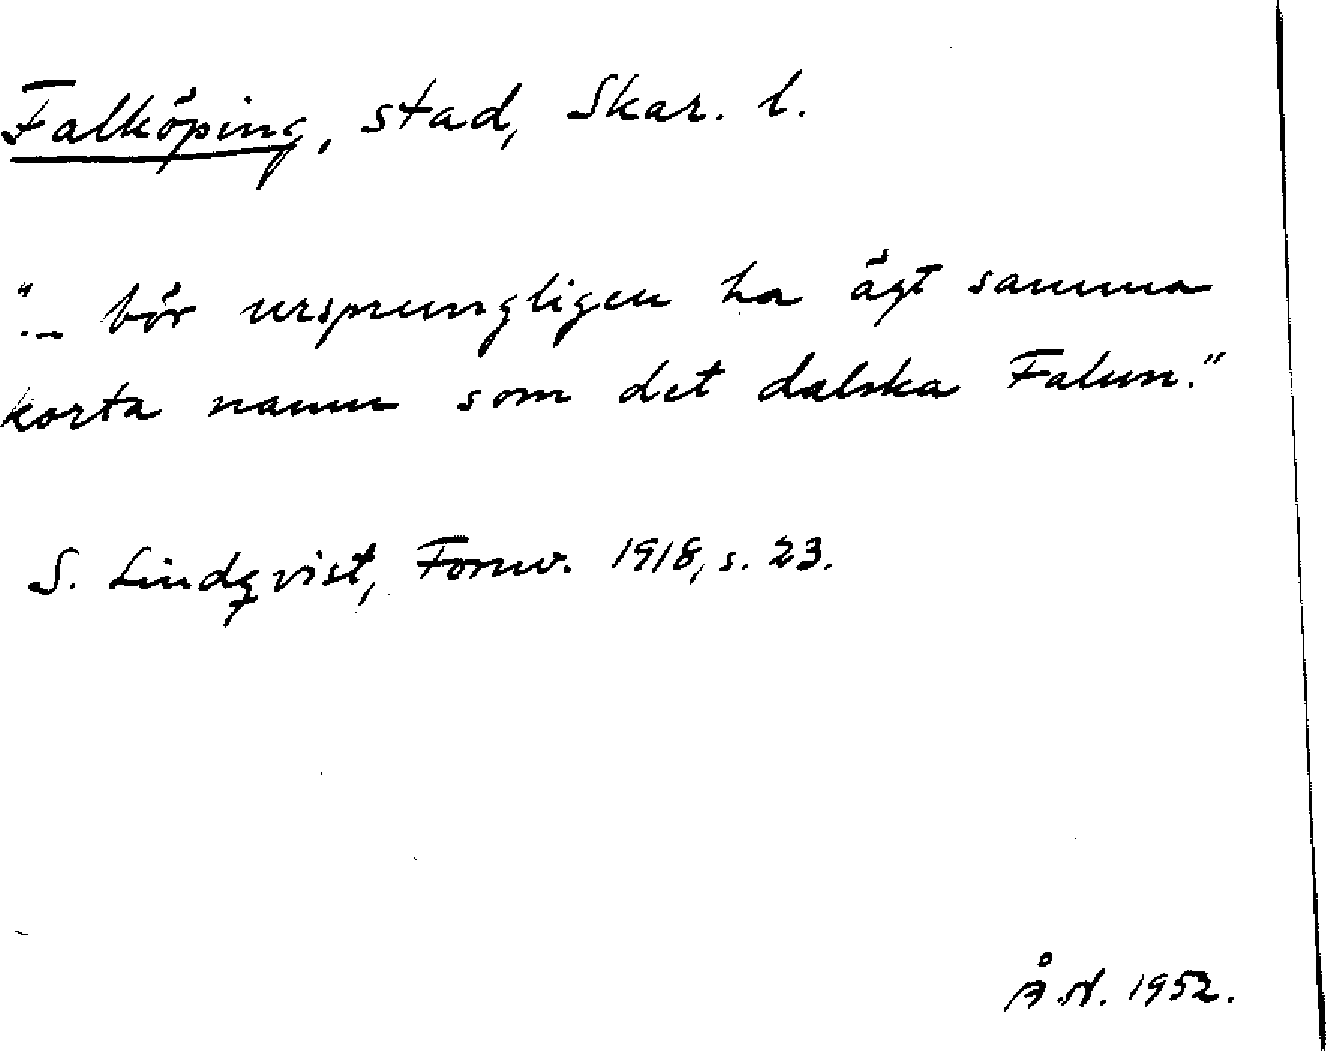 Falköping, stad, Skar. l.
"._ bör ursprungligen ha ägt samma
korta namn som det dalska Falun."
S. Lindqvist, Fornv. 1918, s. 23.
Å.N. 1952.